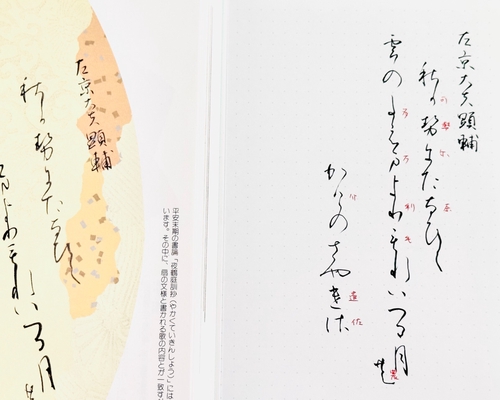 左京大夫顯輔
秋か勢にたなひく
雲のたえまよりもれいつる月
かけのさやけさ
平安末期の書論「夜鶴庭訓抄(やかくていきんしょう)」には
います。その中に、扇の文様と書かれる歌の内容とが一致す
左京大夫顯輔
秋か勢にたなひく
まよりもれいつる月